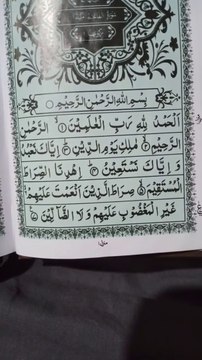 بِسْمِ اللهِ الرَّحْمٰنِ الرَّحِيْمِ
اَلْحَمْدُ لِلّٰهِ رَبِّ الْعٰلَمِيْنَ ۝١ الرَّحْمٰنِ
الرَّحِيْمِ ۝٢ مٰلِكِ يَوْمِ الدِّيْنِ ۝٣ اِيَّاكَ نَعْبُدُ
وَ اِيَّاكَ نَسْتَعِيْنُ ۝٤ اِهْدِنَا الصِّرَاطَ
الْمُسْتَقِيْمَ ۝٥ صِرَاطَ الَّذِيْنَ اَنْعَمْتَ عَلَيْهِمْ ۝٦
غَيْرِ الْمَغْضُوْبِ عَلَيْهِمْ وَ لَا الضَّآلِّيْنَ ۝٧